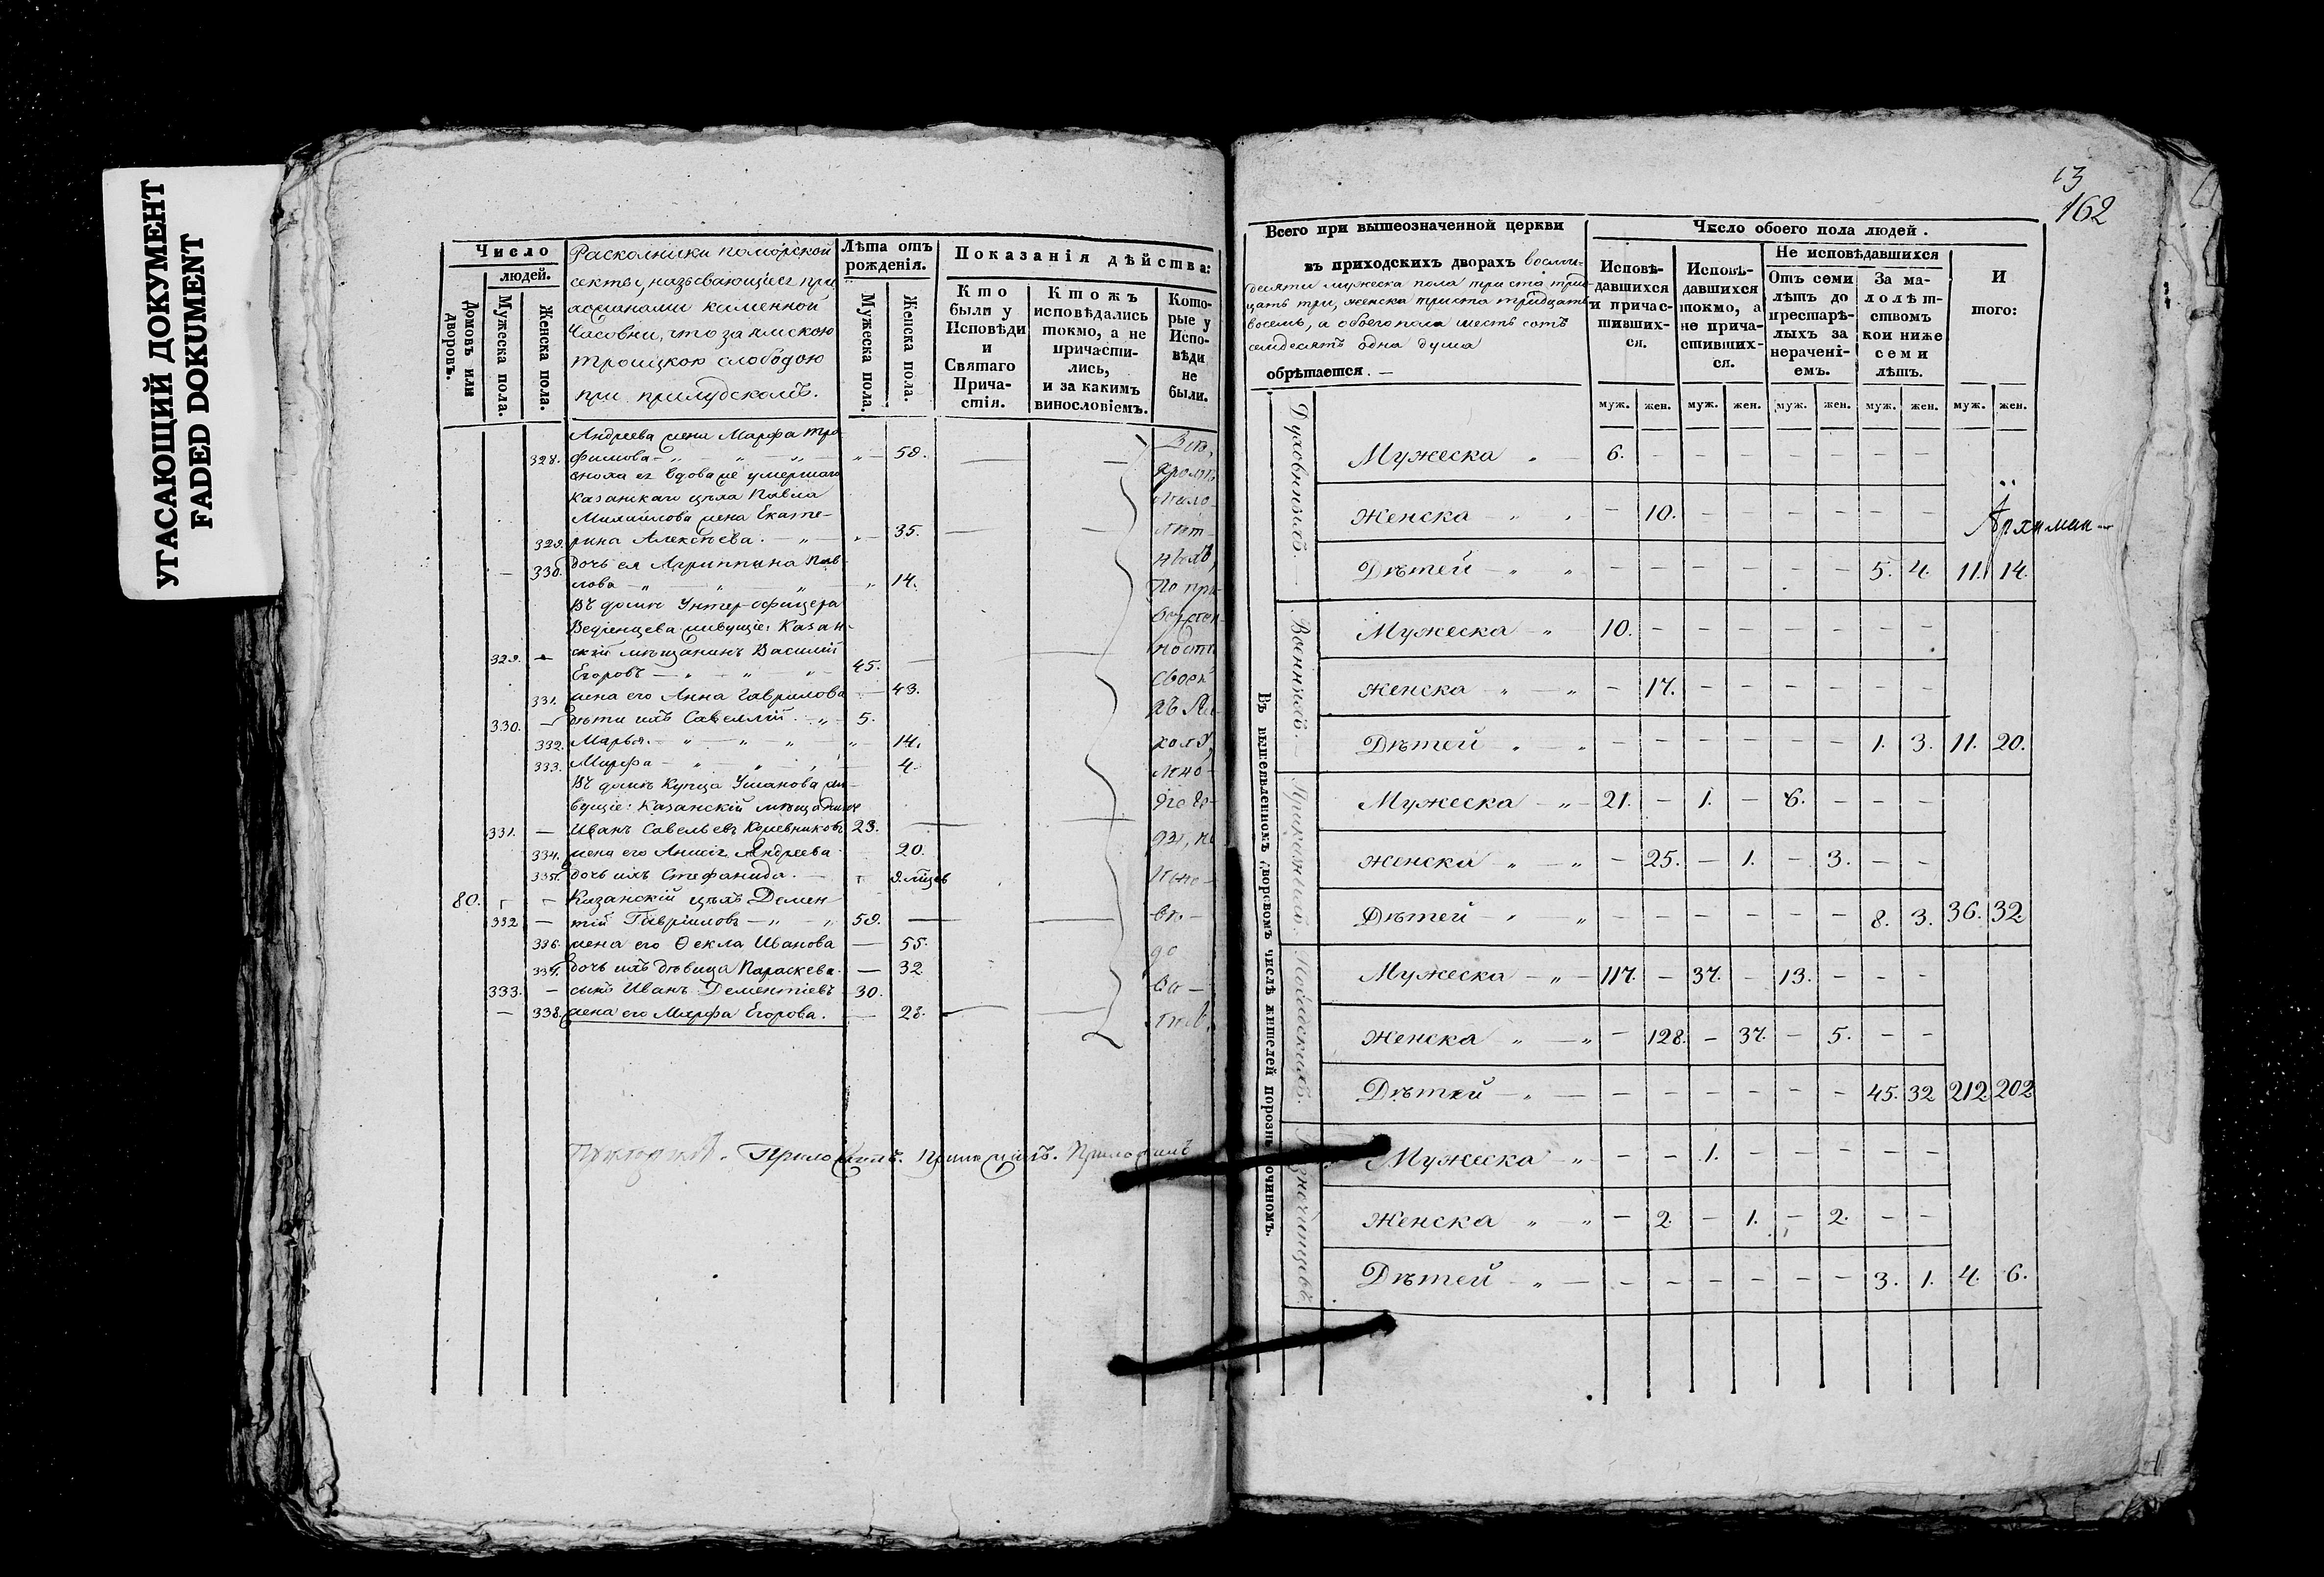 УГАСАЮЩИЙ ДОКУМЕНТ
FADED DOKUMENT
Число
людей.
Домовъ или дворовъ.
Мужеска пола.
Женска пола.
Раскольники поморской
секты, называющіеся при
хожанами каменной
часовни, что за ямскою
троицкою слободою
при
Лѣта отъ рожденія.
Мужеска пола.
Женска пола.
Показанія дѣйства:
Кто были у Исповѣди и Святаго Прича- стія.
Ктожъ исповѣдались токмо, а не причасти- лись, и за какимъ винословіемъ.
Кото- рые у Испо- вѣди не были.
Андреева жена Марфа Тро-
328. фимова 58.
сноха ея вдова же умершаго
Казанскаго цѣха Павла
Михайлова жена Екате-
329. рина Алексѣева. 35.
330. дочь ея Агриппина Пав-
лова 14.
Въ домѣ Унтер-офицера
живущіе: Казан-
329. – скій мѣщанинъ Василій
Егоровъ 45.
331. жена его Анна Гаврилова 43.
330. – дѣти ихъ Савеллій. 5.
332. Марья. 14.
333. Марфа 4.
Въ домѣ Купца Усманова жи-
вущіе: Казанскій мѣщанинъ
331. – Иванъ Савельевъ Кожевниковъ 23.
334. жена его Андреева 20.
335. дочь ихъ Стефанида. 9. мѣсев
80. Казанскій цѣхъ Демен-
332 – тій Гавриловъ 59.
336. жена его Ѳекла Иванова – 55.
337. дочь ихъ дѣвица Параскева. – 32
333. – сынъ Иванъ Дементіевъ 30.
– 338. жена его Марфа Егорова. – 28.
Всѣ,
кромѣ
мало-
лѣт-
ныхъ,
По при-
вержен-
ности
своей
къ Ра-
колу,
13
162
Всего при вышеозначенной церкви
въ приходскихъ дворахъ восьми-
десяти мужеска пола триста трид-
цать три, женска триста тридцать
восемь, а обоего пола шесть сотъ
семдесятъ одна душа
обрѣтается. –
Число обоего пола людей.
Исповѣ- давшихся и причас- тивших- ся.
Исповѣ- давшихся токмо, а не прича- стивших- ся.
Не исповѣдавшихся
Отъ семи лѣтъ до престарѣ- лыхъ за нерачені- емъ.
За ма- лолѣт- ствомъ кои ниже семи лѣтъ.
И того:
муж. жен. муж. жен. муж. жен. муж. жен. муж. жен.
Въ вышеявленномъ дворовомъ числѣ жителей порознь очиномъ.
Духовныхъ.
Мужеска 6. – – – – – – –
Женска – 10. – – – – – –
Архиман-
Дѣтей – – – – – – 5. 4. 11. 14.
Военныхъ.
Мужеска 10. – – – – – – –
Женска – 17. – – – – – –
Дѣтей – – – – – – 1. 3. 11. 20.
Приказныхъ.
Мужеска 21. – 1. – 6. – – –
Женска – 25. – 1. – 3. – –
Дѣтей – – – – – – 8. 3. 36. 32
Посадскихъ.
Мужеска 117. – 37. – 13. – – –
Женска – 128. – 37. – 5. – –
Дѣтей – – – – – – 45. 32 212 202
Разночинцевъ.
Мужеска – – 1. – – – – –
Женска – 2. – 1. – 2. – –
Дѣтей – – – – – – 3. 1. 4. 6.